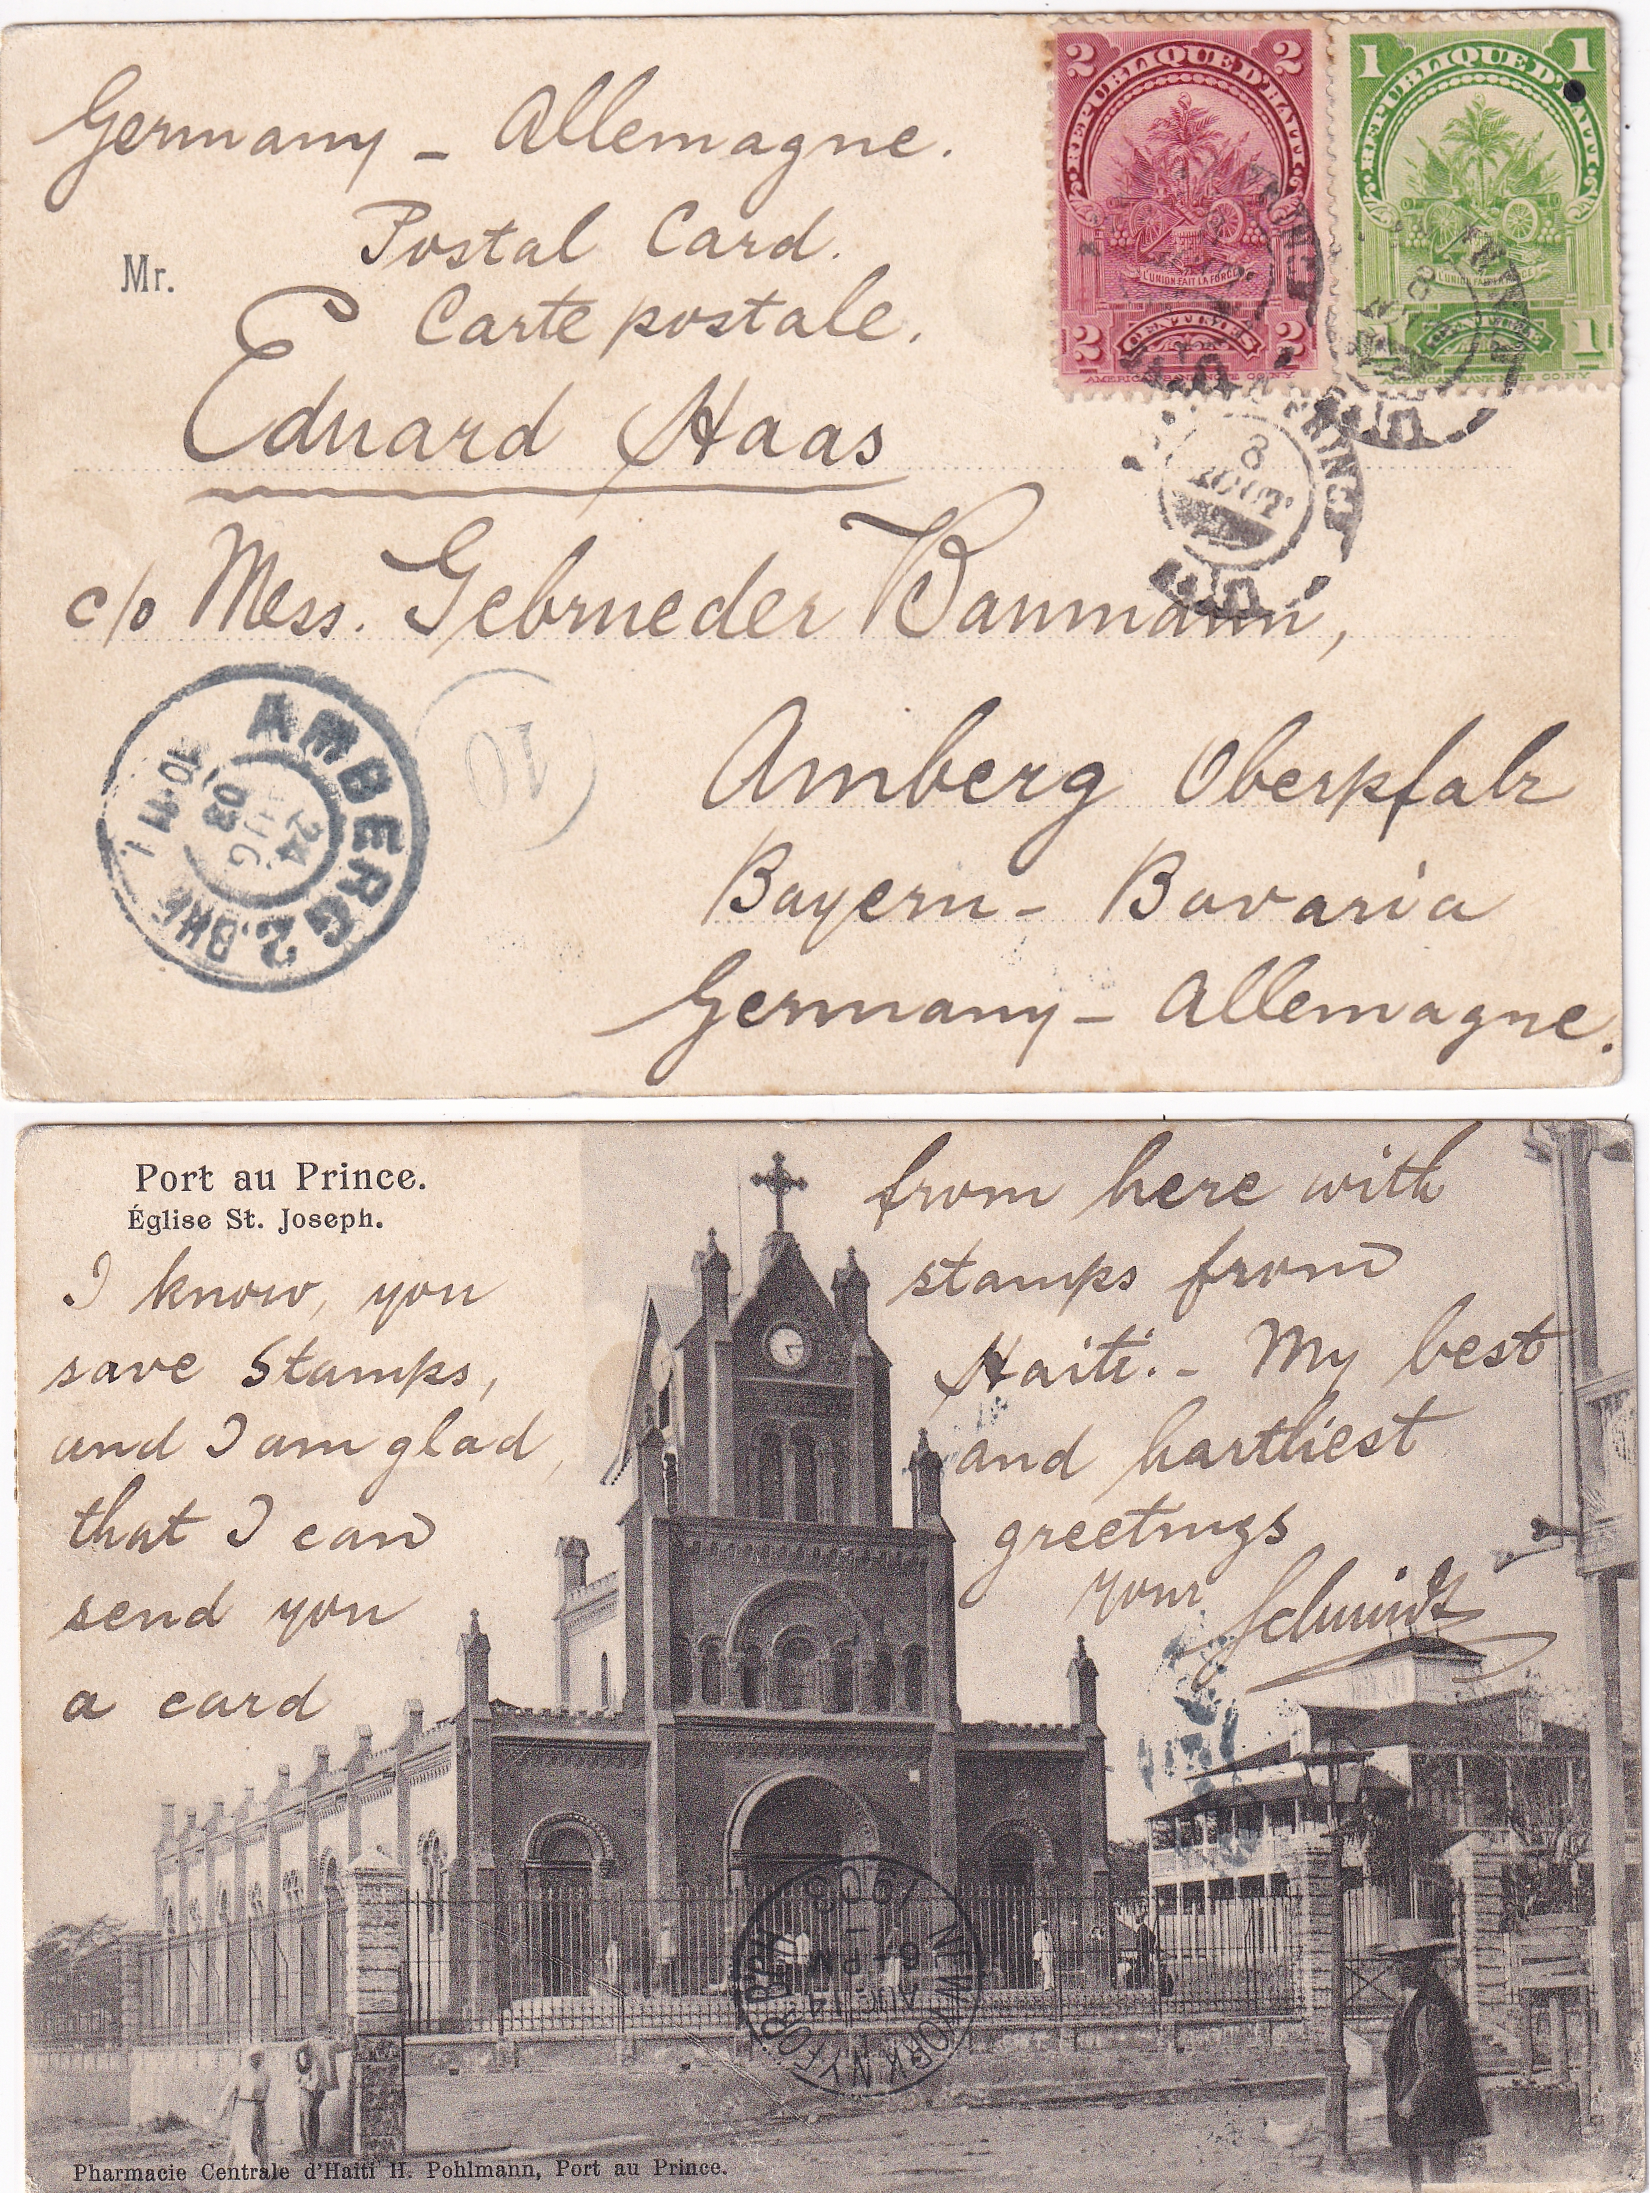 Germany - Allemagne.
Postal Card.
Mr.
Carte postale.
Eduard Haas
c/o Mess. Gebrueder Baumann,
Amberg Oberpfalz
Bayern - Bavaria
Germany - Allemagne.
2 2
REPUBLIQUE D'HAITI
L'UNION FAIT LA FORCE
2 CENTIMES 2
AMERICAN BANK NOTE CO. N.Y.
1 1
REPUBLIQUE D'HAITI
L'UNION FAIT LA FORCE
1
AMERICAN BANK NOTE CO. N.Y.
8
AOUT
AMBERG 2. BHF.
24
AUG
03
10-11
10
Port au Prince.
Église St. Joseph.
I know, you
save Stamps,
and I am glad,
that I can
send you
a card
from here with
stamps from
Haiti. - My best
and hartliest
greetings
your Schmidt
NEW YORK N.Y. FOR'D
AUG 14
6 - PM
1903
97
Pharmacie Centrale d'Haiti H. Pohlmann, Port au Prince.